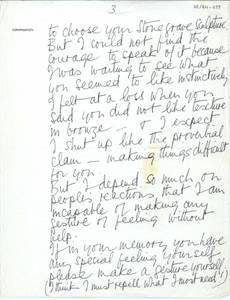 3
to choose your Stonegrave sculpture.
But I could not find the
courage to speak of it because
I was waiting to see what
you seemed to like instinctively
I felt at a loss when you
said you did not like texture
in bronze — & I expect
I shut up like the proverbial
clam — making things difficult
for you
But I depend so much on
peoples reactions that I am
incapable of making any
gesture of feeling without
help.
If in your memory you have
any special feeling yourself
please make a gesture yourself
(I think I must repel what I most need!)